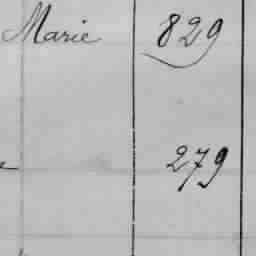 Marie 829
279